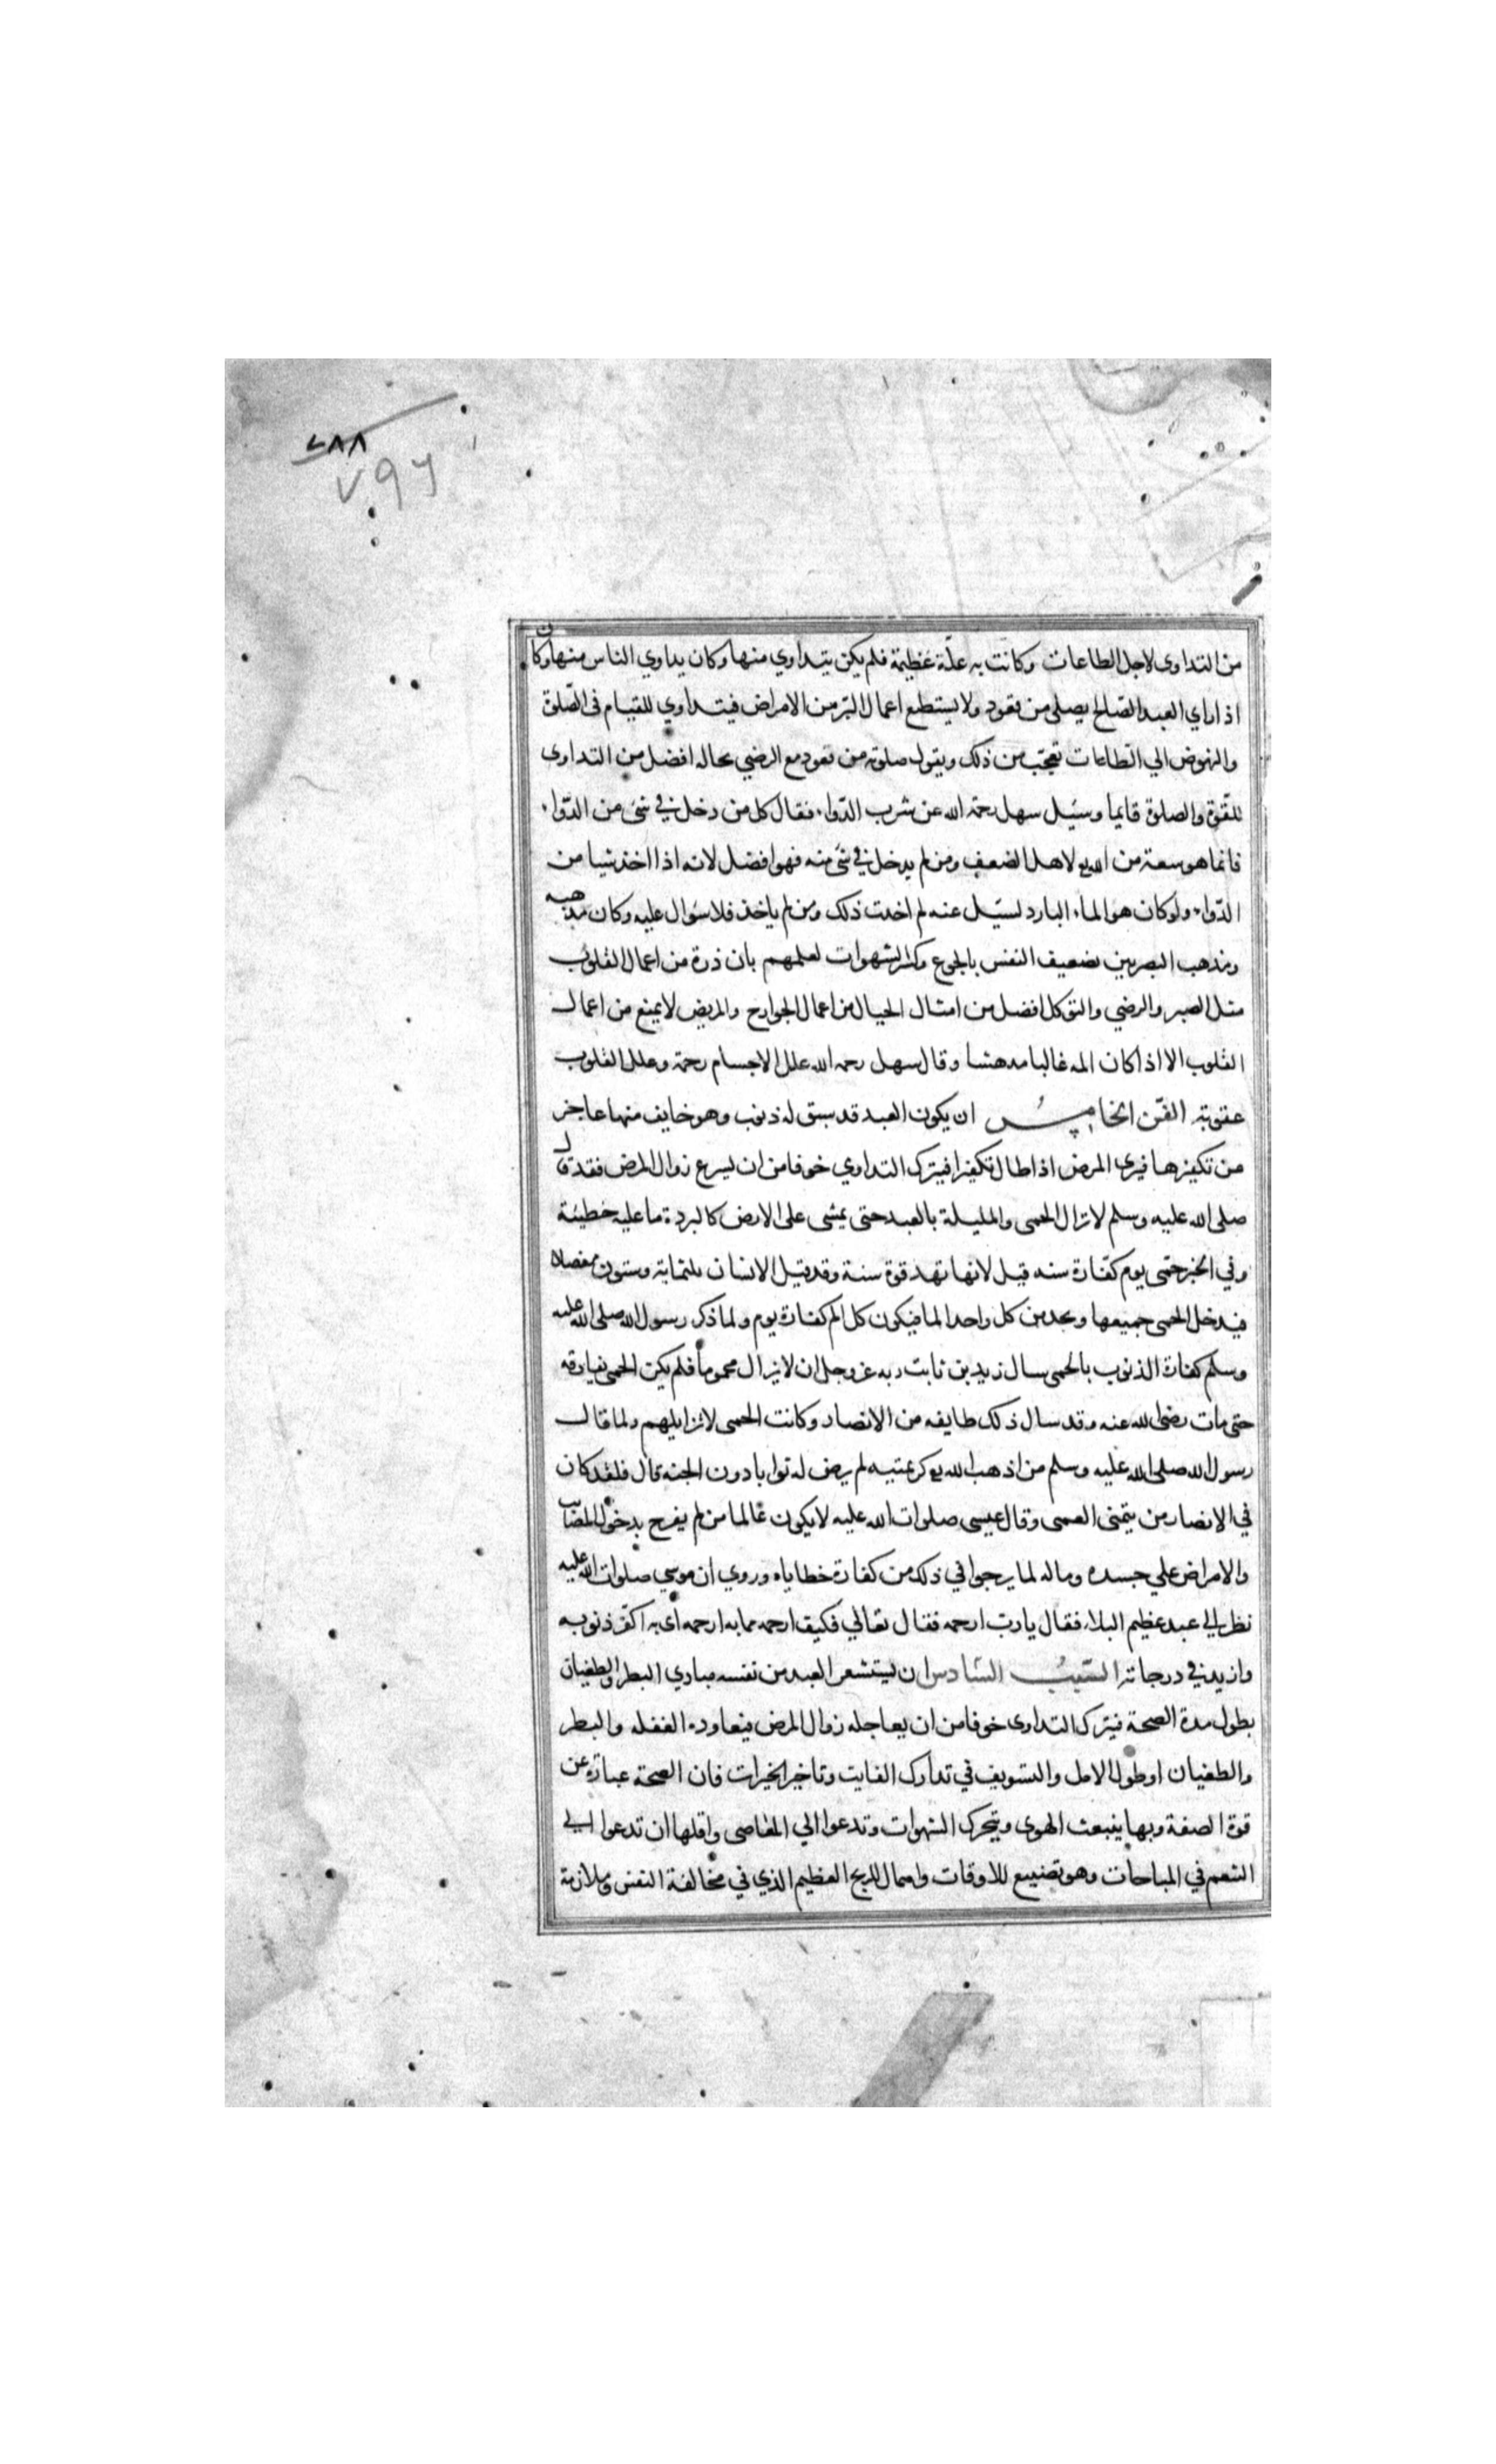 ٧٨٨
٧٩٦
من التداوى لاجل الطاعات وكانت به علّة عظيمة فلم يكن يتداوي منها وكان يداوي الناس منها وكان
اذا راي العبد الصّالح يصلي من قعود ولا يستطع اعمال البرّ من الامراض فيتداوي للقيام فى الصّلوة
والنهوض الي الطاعات تعجّب من ذلك ويقول صلوته من قعود مع الرضي بحاله افضل من التداوى
للقّوة والصلوة قايما وسئيل سهل رحمة الله عن شرب الدّواء فقال كل من دخل في شئ من الدّواء
فانما هو سعة من الله تع لاهل الضعف ومن لم يدخل في شئ منه فهو افضل لانه اذا اخذ شيا من
الدّواء ولو كان هو الماء البارد لسئيل عنه لم اخذت ذلك ومن لم ياخذ فلا سؤال عليه وكان مذهبه
ومذهب البصريين تضعيف النفس بالجوع وكسر الشهوات لعلمهم بان ذرة من اعمال القلوب
مثل الصبر والرضي والتوكل افضل من امثال الجبال من اعمال الجوارح والمرض لا يمنع من اعمال
القلوب الا اذا كان المه غالبا مدهشا وقال سهل رحمه الله علل الاجسام رحمة وعلل القلوب
عقوبة الفّن الخامس ان يكون العبد قد سبق له ذنوب وهو خايف منها عاجز
من تكفيرها فيرى المرض اذا طال تكفيرا فيترك التداوي خوفا من ان يسرع زوال المرض فقد قال
صلى الله عليه وسلم لا تزال الحمى والمليلة بالعبد حتى يمشى على الارض كالبردة ما عليه خطيئة
وفي الخبر حمّى يوم كفّارة سنه قيل لانها تهد قوة سنة وقد قيل الانسان ثلثماية وستون مفصلا
فيدخل الحمى جميعها ويجد من كل واحد الما فيكون كل الم كفارة يوم ولما ذكر رسول الله صلى الله عليه
وسلم كفارة الذنوب بالحمى سال زيد بن ثابت ربه عز وجل ان لا يزال محموما فلم يكن الحمى يفارقه
حتى مات رضى الله عنه وقد سال ذلك طايفه من الانصار وكانت الحمى لا تزايلهم ولما قال
رسول الله صلى الله عليه وسلم من اذهب الله تع كريمتيه لم يرض له ثوابا دون الجنه قال فلقد كان
في الانصار من يتمنى العمى وقال عيسى صلوات الله عليه لا يكون عالما من لم يفرح بدخول المصايب
والامراض علي جسده وماله لما يرجوا في ذلك من كفارة خطاياه وروي ان موسي صلوات الله عليه
نظر الي عبد عظيم البلاء فقال يا ربّ ارحمه فقال تعالي فكيف ارحمه مما به ارحمه اى به اكفّر ذنوبه
وازيد في درجاته السّبب السّادس ان يستشعر العبد من نفسه مبادي البطر والطغيان
بطول مدة الصحة فيترك التداوى خوفا من ان يعاجله زوال المرض فيعاوده الغفله والبطر
والطغيان او طول الامل والتسويف في تدارك الفايت وتاخير الخيرات فان الصحة عبارة عن
قوة الصفة وبها ينبعث الهوى ويتحرك الشهوات وتدعوا الي المعاصى واقلها ان تدعوا الي
التنعم في المباحات وهو تضييع للاوقات واهمال للربح العظيم الذي في مخالفة النفس وملازمة